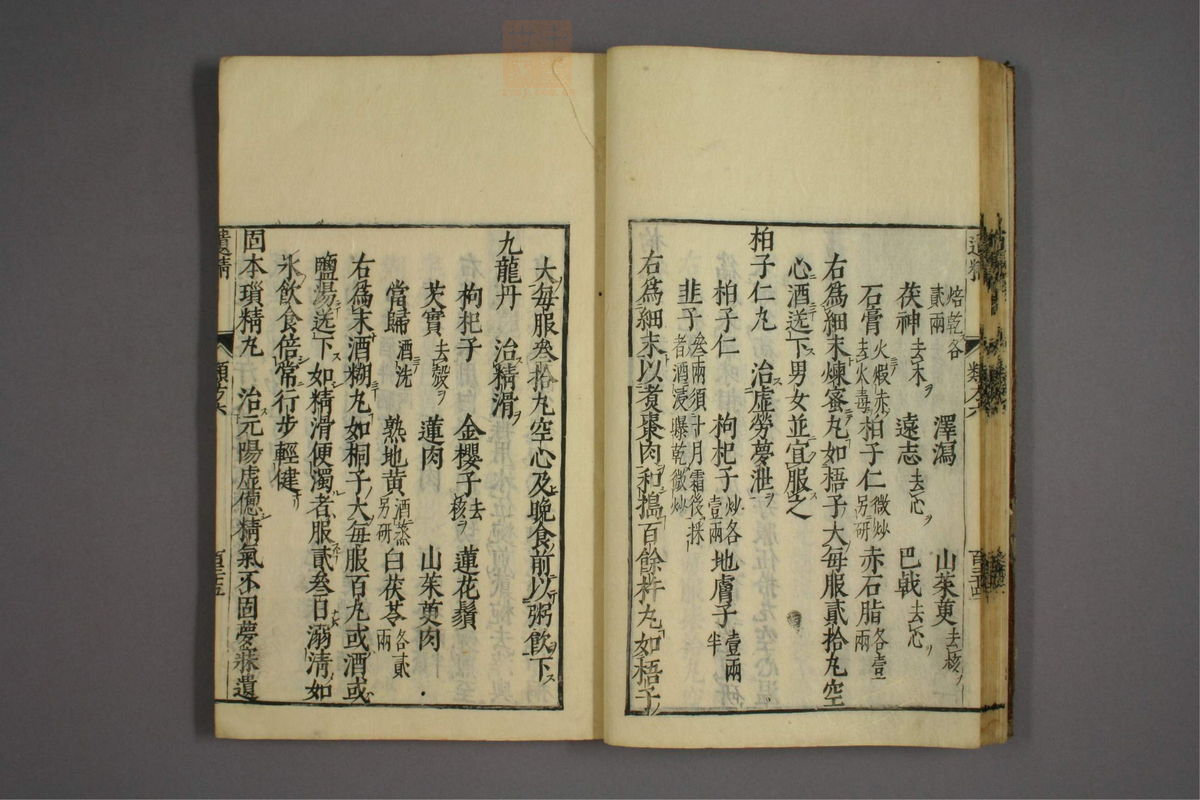 焙乾各貳兩　澤瀉　山茱萸去核
茯神去木　遠志去心　巴戟去心
石膏火煅赤去火毒　柏子仁微炒另研　赤石脂各壹兩
右爲細末煉蜜丸如梧子大毎服貳拾丸空
心酒送下男女並宜服之
柏子仁丸　治虛勞夢泄
柏子仁　枸杞子炒各壹兩　地膚子壹兩半
韭子叁兩須十月霜後採者酒浸曝乾微炒
右爲細末以煮棗肉和搗百餘杵丸如梧子
大毎服叁拾丸空心及晚食前以粥飲下
九龍丹　治精滑
枸杞子　金櫻子去核　蓮花鬚
芡實去殼　蓮肉　山茱萸肉
當歸酒洗　熟地黃酒蒸另研　白茯苓各貳兩
右爲末酒糊丸如桐子大毎服百丸或酒或
鹽湯送下如精滑便濁者服貳叁日溺淸如
氷飲食倍常行步輕健
固本瑣精丸　治元陽虛憊精氣不固夢寐遺
遺精　類 六